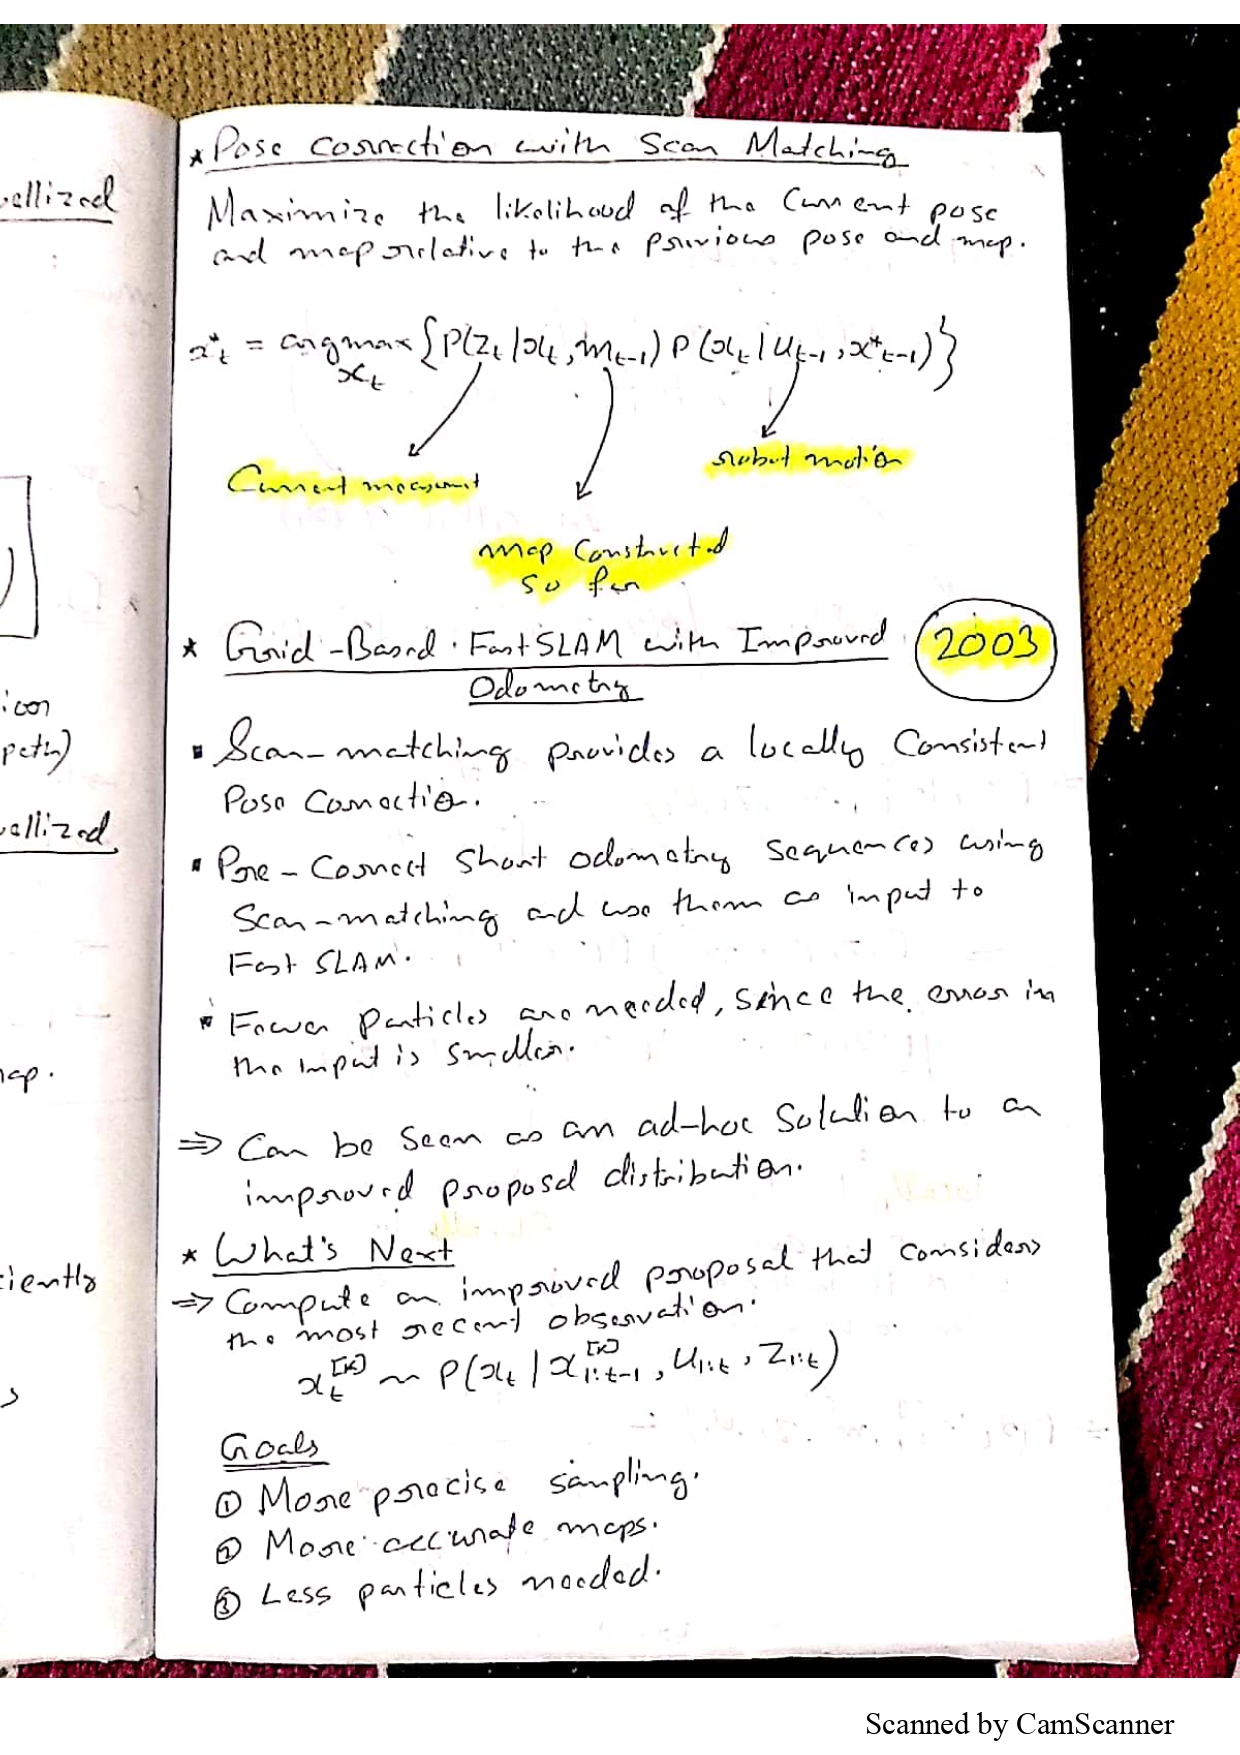 vellized
icon
path)
vellized
map.
ciently
s
* Pose correction with Scan Matching
Maximize the likelihood of the Current pose
and map relative to the previous pose and map.
x*t = argmax {P(zt | xt, mt-1) P(xt | ut-1, x*t-1)}
xt
robot motion
Current measurment
map Constructed
so far
* Grid-Based FastSLAM with Improved
Odometry
2003
▪ Scan-matching provides a locally Consistent
Pose Correction.
▪ Pre-Correct Short odometry sequences using
Scan-matching and use them as input to
Fast SLAM.
▪ Fewer Particles are needed, since the error in
the input is smaller.
⇒ Can be Seen as an ad-hoc Solution to an
improved proposal distribution.
* What's Next
⇒ Compute an improved proposal that considers
the most recent observation.
xt[k] ~ P(xt | x1:t-1[k], u1:t, z1:t)
Goals
① More precise sampling.
② More accurate maps.
③ Less particles needed.
Scanned by CamScanner